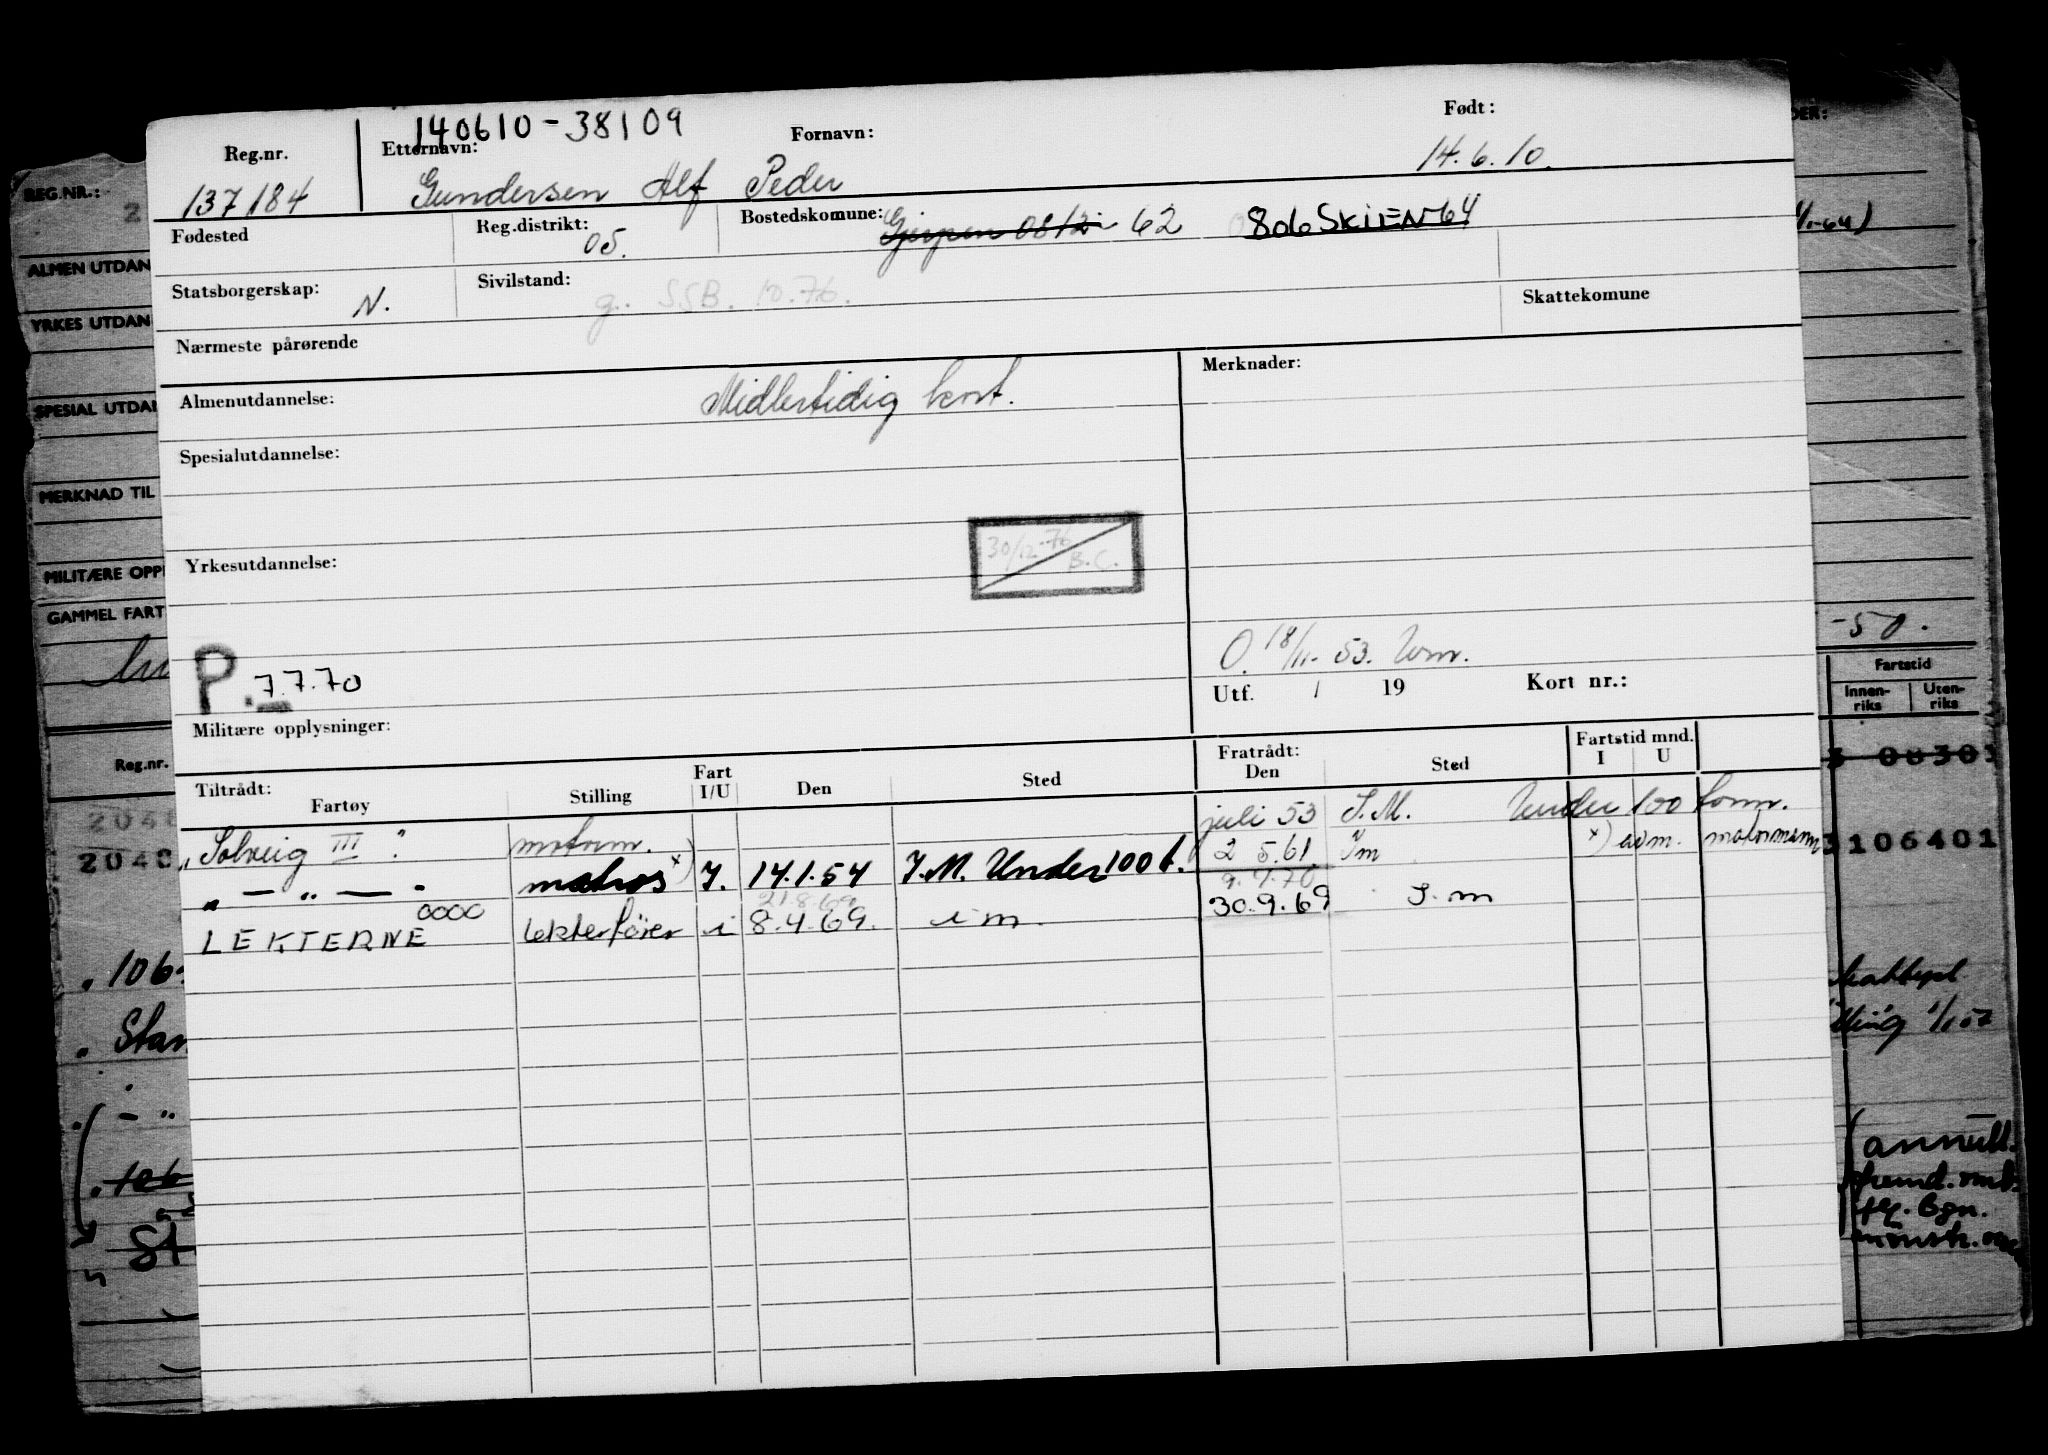 140610-38109
Reg.nr. Etternavn: Fornavn: Født:
137184 Gundersen Alf Peder 14.6.10.
Fødested Reg.distrikt: 05. Bostedskomune: Gjerpen 0812 62 806 SKIEN 64
Statsborgerskap: N. Sivilstand: g. SSB. 10.76. Skattekomune
Nærmeste pårørende
Almenutdannelse: Midlertidig kort. Merknader:
Spesialutdannelse:
30/12-76 B.C.
Yrkesutdannelse:
P. 7.7.70
O. 18/11-53.
Utf. / 19 Kort nr.:
Militære opplysninger:
Tiltrådt: Fartøy Stilling Fart I/U Den Sted Fratrådt: Den Sted Fartstid mnd. I U
"Solveig III" motorm. juli 53 I.M. Under 100 tonn.
" — " — " matros x) I. 14.1.54 I.M. Under 100 t. 2 5.61 Im x) avm. motormann
0000 21.8.69 9.7.70
LEKTERNE lekterfører i 8.4.69. i m. 30.9.69 I.m
REG.NR.:
2
ALMEN UTDAN
YRKES UTDAN
SPESIAL UTDA
MERKNAD TIL
MILITÆRE OPP
GAMMEL FART
Reg.nr.
2048
2048
"106-
Stan
- "
"106
St
DER:
/1-64)
-50.
Fartstid
Innen-riks Uten-riks
3 00303
3106401
1/1 57
(annull.
fremd. omb.
Bgn.
mønstr.